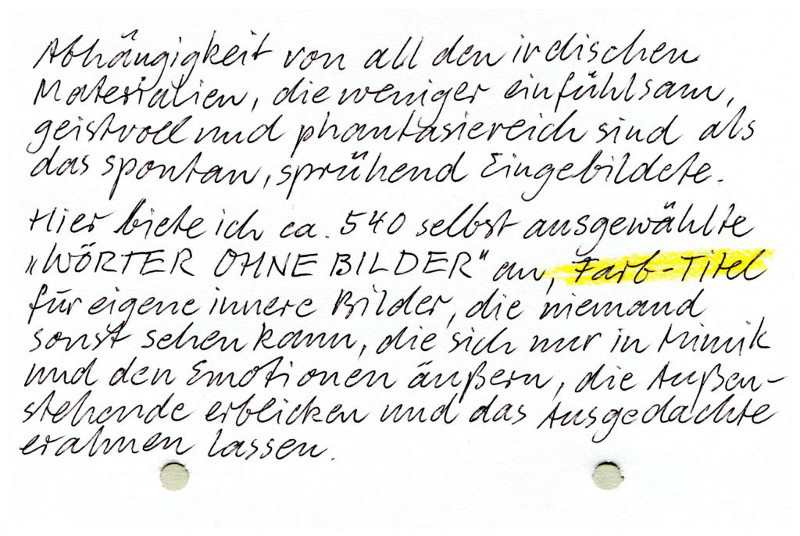 Abhängigkeit von all den irdischen
Materialien, die weniger einfühlsam,
geistvoll und phantasiereich sind als
das spontan, sprühend Eingebildete.
Hier biete ich ca. 540 selbst ausgewählte
„WÖRTER OHNE BILDER" an, Farb-Titel
für eigene innere Bilder, die niemand
sonst sehen kann, die sich nur in Mimik
und den Emotionen äußern, die Außen-
stehende erblicken und das Ausgedachte
erahnen lassen.